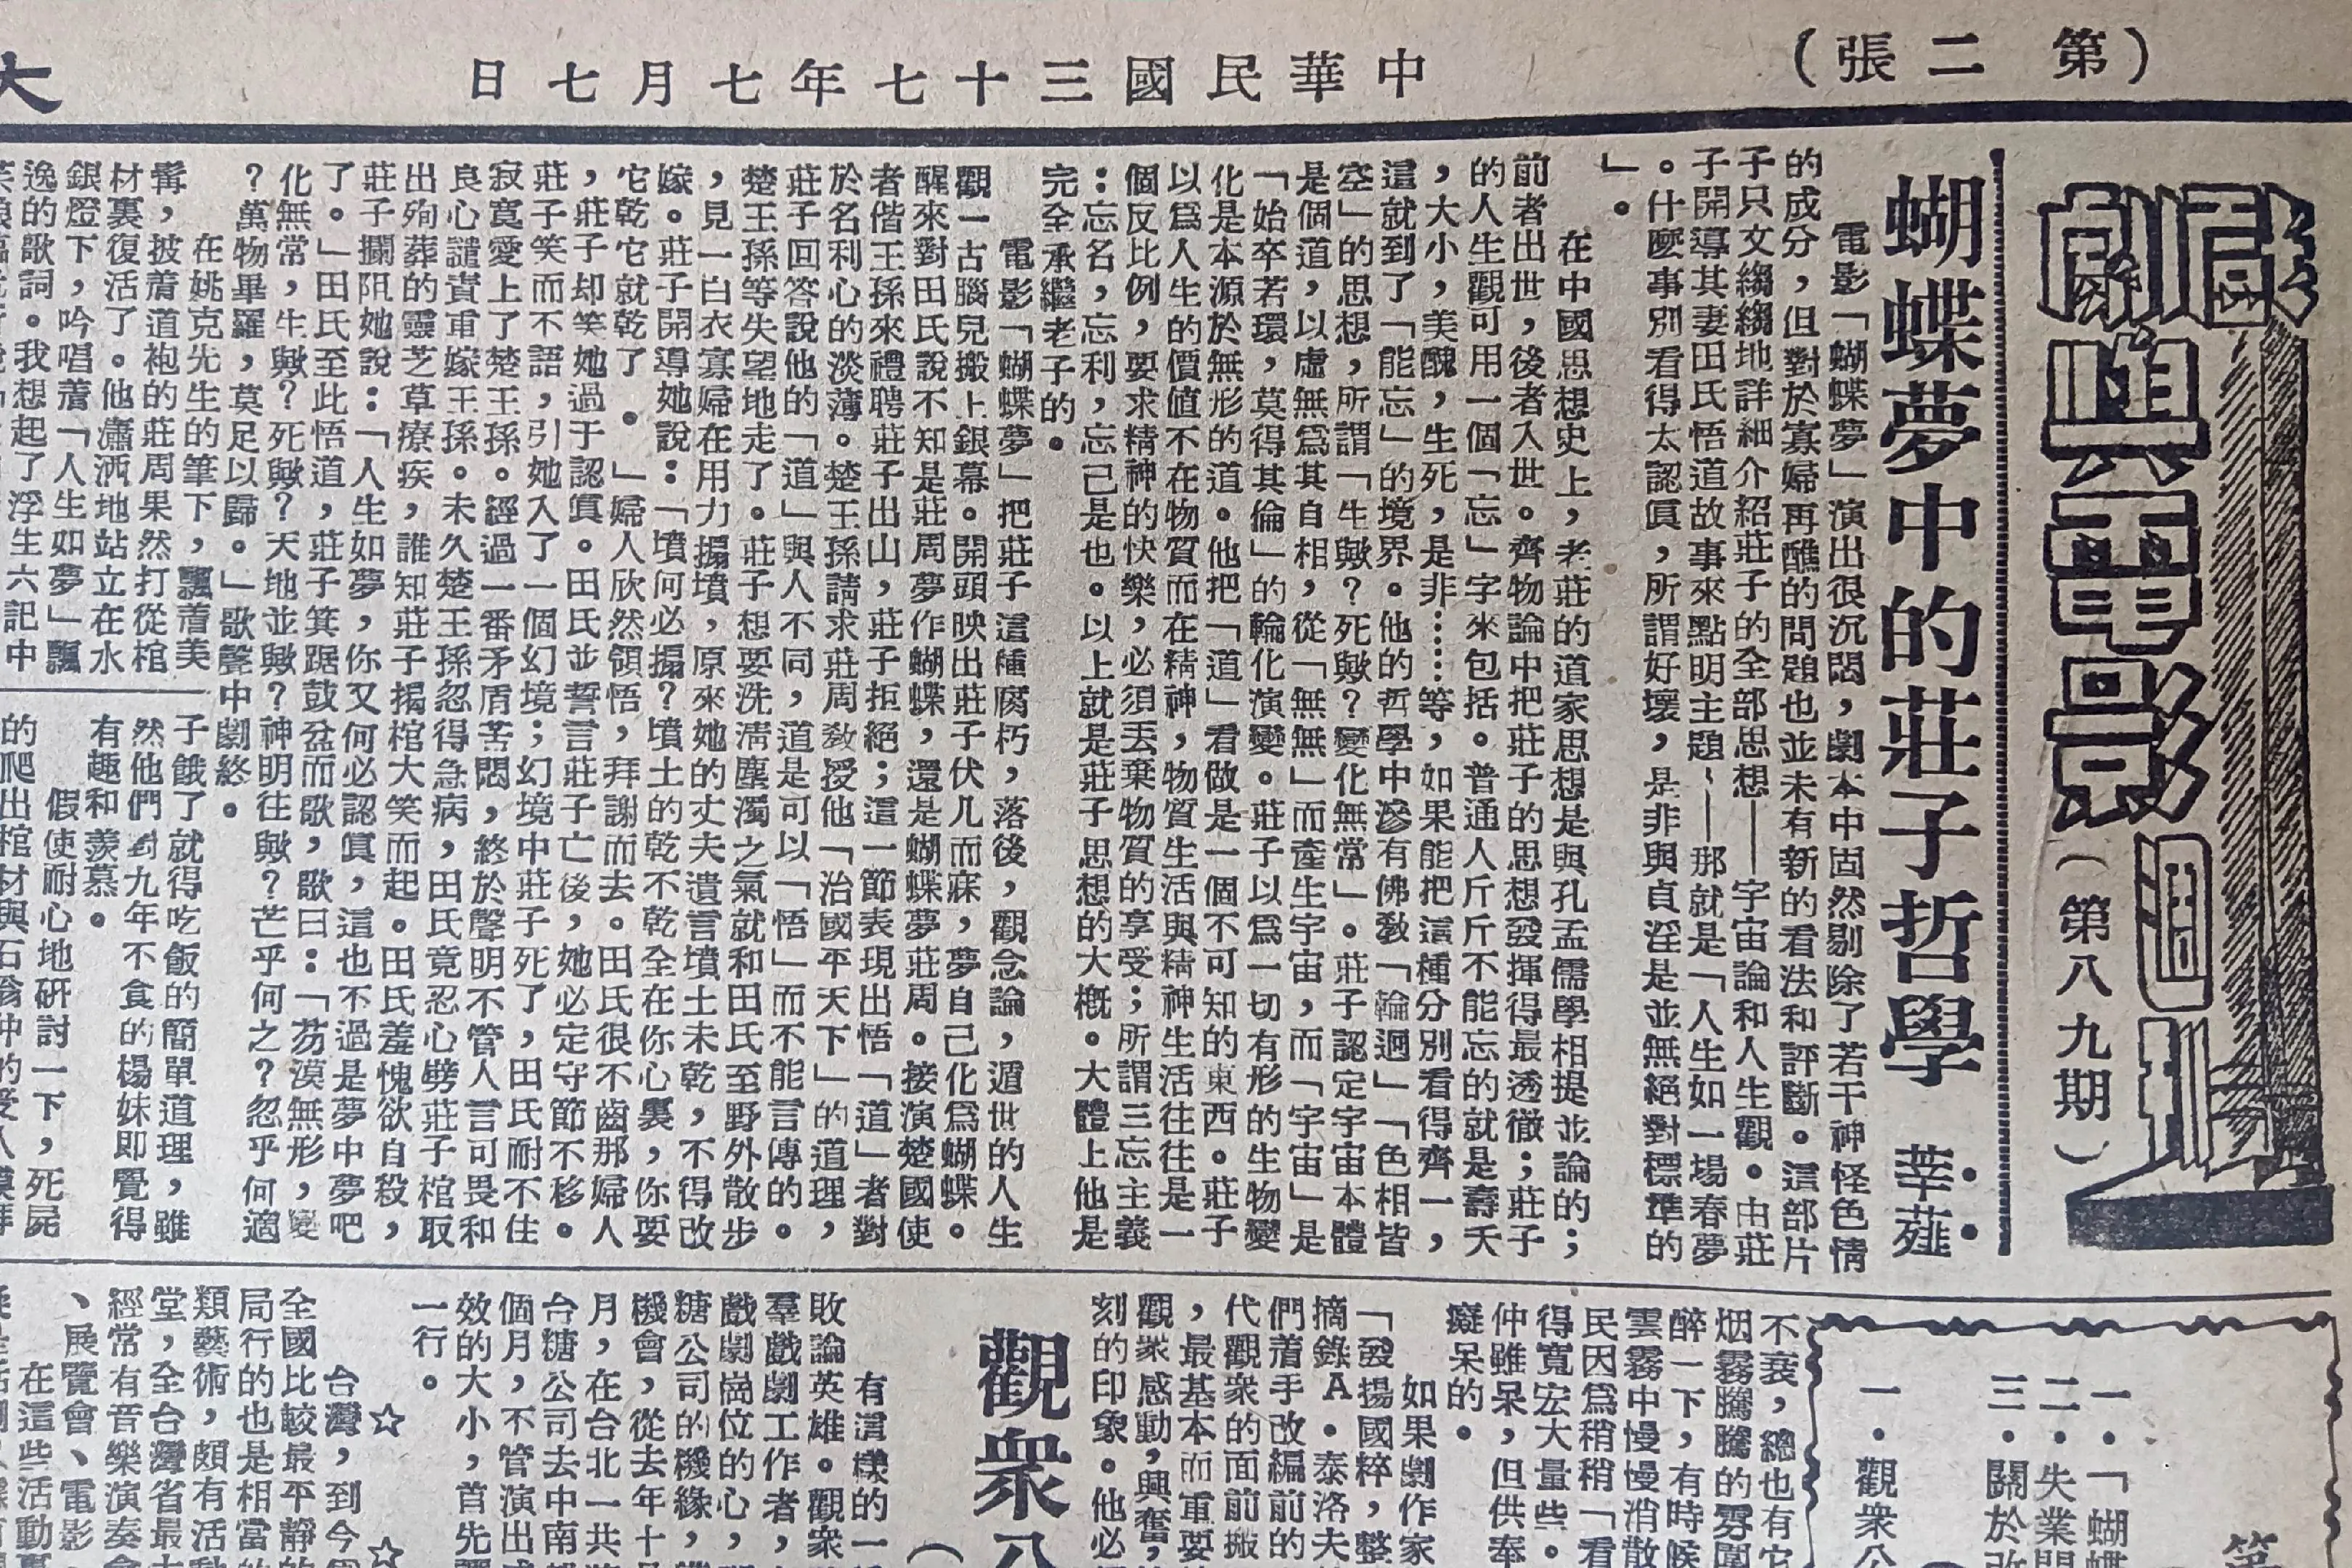 （第二張）
中華民國三十七年七月七日
大
戲劇與電影週刊
（第八九期）
蝴蝶夢中的莊子哲學
莘薤
電影「蝴蝶夢」演出很沉悶，劇本中固然剔除了若干神怪色情
的成分，但對於寡婦再醮的問題也並未有新的看法和評斷。這部片
子只文縐縐地詳細介紹莊子的全部思想——宇宙論和人生觀。由莊
子開導其妻田氏悟道故事來點明主題、——那就是「人生如一場春夢
。什麼事別看得太認眞，所謂好壞，是非與貞淫是並無絕對標準的
」。
在中國思想史上，老莊的道家思想是與孔孟儒學相提並論的；
前者出世，後者入世。齊物論中把莊子的思想發揮得最透徹；莊子
的人生觀可用一個「忘」字來包括。普通人斤斤不能忘的就是壽夭
，大小，美醜，生死，是非……等，如果能把這種分別看得齊一，
這就到了「能忘」的境界。他的哲學中滲有佛教「輪迴」「色相皆
空」的思想，所謂「生歟？死歟？變化無常」。莊子認定宇宙本體
是個道，以虛無爲其自相，從「無無」而產生宇宙，而「宇宙」是
「始卒若環，莫得其倫」的輪化演變。莊子以爲一切有形的生物變
化是本源於無形的道。他把「道」看做是一個不可知的東西。莊子
以爲人生的價值不在物質而在精神，物質生活與精神生活往往是一
個反比例，要求精神的快樂，必須丟棄物質的享受；所謂三忘主義
：忘名，忘利，忘己是也。以上就是莊子思想的大概。大體上他是
完全承繼老子的。
電影「蝴蝶夢」把莊子這種腐朽，落後，觀念論，遁世的人生
觀一古腦兒搬上銀幕。開頭映出莊子伏几而寐，夢自己化爲蝴蝶。
醒來對田氏說不知是莊周夢作蝴蝶，還是蝴蝶夢莊周。接演楚國使
者偕王孫來禮聘莊子出山，莊子拒絕；這一節表現出悟「道」者對
於名利心的淡薄。楚王孫請求莊周教授他「治國平天下」的道理，
莊子回答說他的「道」與人不同，道是可以「悟」而不能言傳的。
楚王孫等失望地走了。莊子想要洗淸塵濁之氣就和田氏至野外散步
，見一白衣寡婦在用力搧墳，原來她的丈夫遺言墳土未乾，不得改
嫁。莊子開導她說：「墳何必搧？墳土的乾不乾全在你心裏，你要
它乾它就乾了。」婦人欣然領悟，拜謝而去。田氏很不齒那婦人
，莊子却笑她過于認眞。田氏並誓言莊子亡後，她必定守節不移。
莊子笑而不語，引她入了一個幻境；幻境中莊子死了，田氏耐不住
寂寞愛上了楚王孫。經過一番矛盾苦悶，終於聲明不管人言可畏和
良心譴責重嫁王孫。未久楚王孫忽得急病，田氏竟忍心劈莊子棺取
出殉葬的靈芝草療疾，誰知莊子揭棺大笑而起。田氏羞愧欲自殺，
莊子攔阻她說：「人生如夢，你又何必認眞，這也不過是夢中夢吧
了。」田氏至此悟道，莊子箕踞鼓盆而歌，歌曰：「芴漠無形，變
化無常，生歟？死歟？天地並歟？神明往歟？芒乎何之？忽乎何適
？萬物畢羅，莫足以歸。」歌聲中劇終。
在姚克先生的筆下，飄着美
髯，披着道袍的莊周果然打從棺
材裏復活了。他瀟洒地站立在水
銀燈下，吟唱着「人生如夢」飄
逸的歌詞。我想起了浮生六記中
子餓了就得吃飯的簡單道理，雖
然他們對九年不食的楊妹即覺得
有趣和羨慕。
假使耐心地硏討一下，死屍
的爬出棺材與石翁仲的受人
不衰，總也有它
烟霧騰騰的雰圍
醉一下，有時候
雲霧中慢慢消散
民因爲稍稍「看
得寬宏大量些。
仲雖呆，但供奉
癡呆的。
如果劇作家
「發揚國粹，整
摘錄A．泰洛夫
們着手改編前的
代觀衆的面前搬
，最基本而重要
觀衆感動，興奮，
刻的印象。他必
觀衆
有這樣的一
敗論英雄。觀衆
羣戲劇工作者，
戲劇崗位的心，
糖公司的機緣，
機會，從去年十
月，在台北一共
台糖公司去中南
個月，不管演出
效的大小，首先
一行。
☆
☆
台灣，到今
全國比較最平靜的
局行的也是相當的
類藝術，頗有活動
堂，全台灣省最
經常有音樂演奏會
、展覽會、電影
在這些活動
一．「蝴蝶
二．失業
三．關於改
一．觀衆